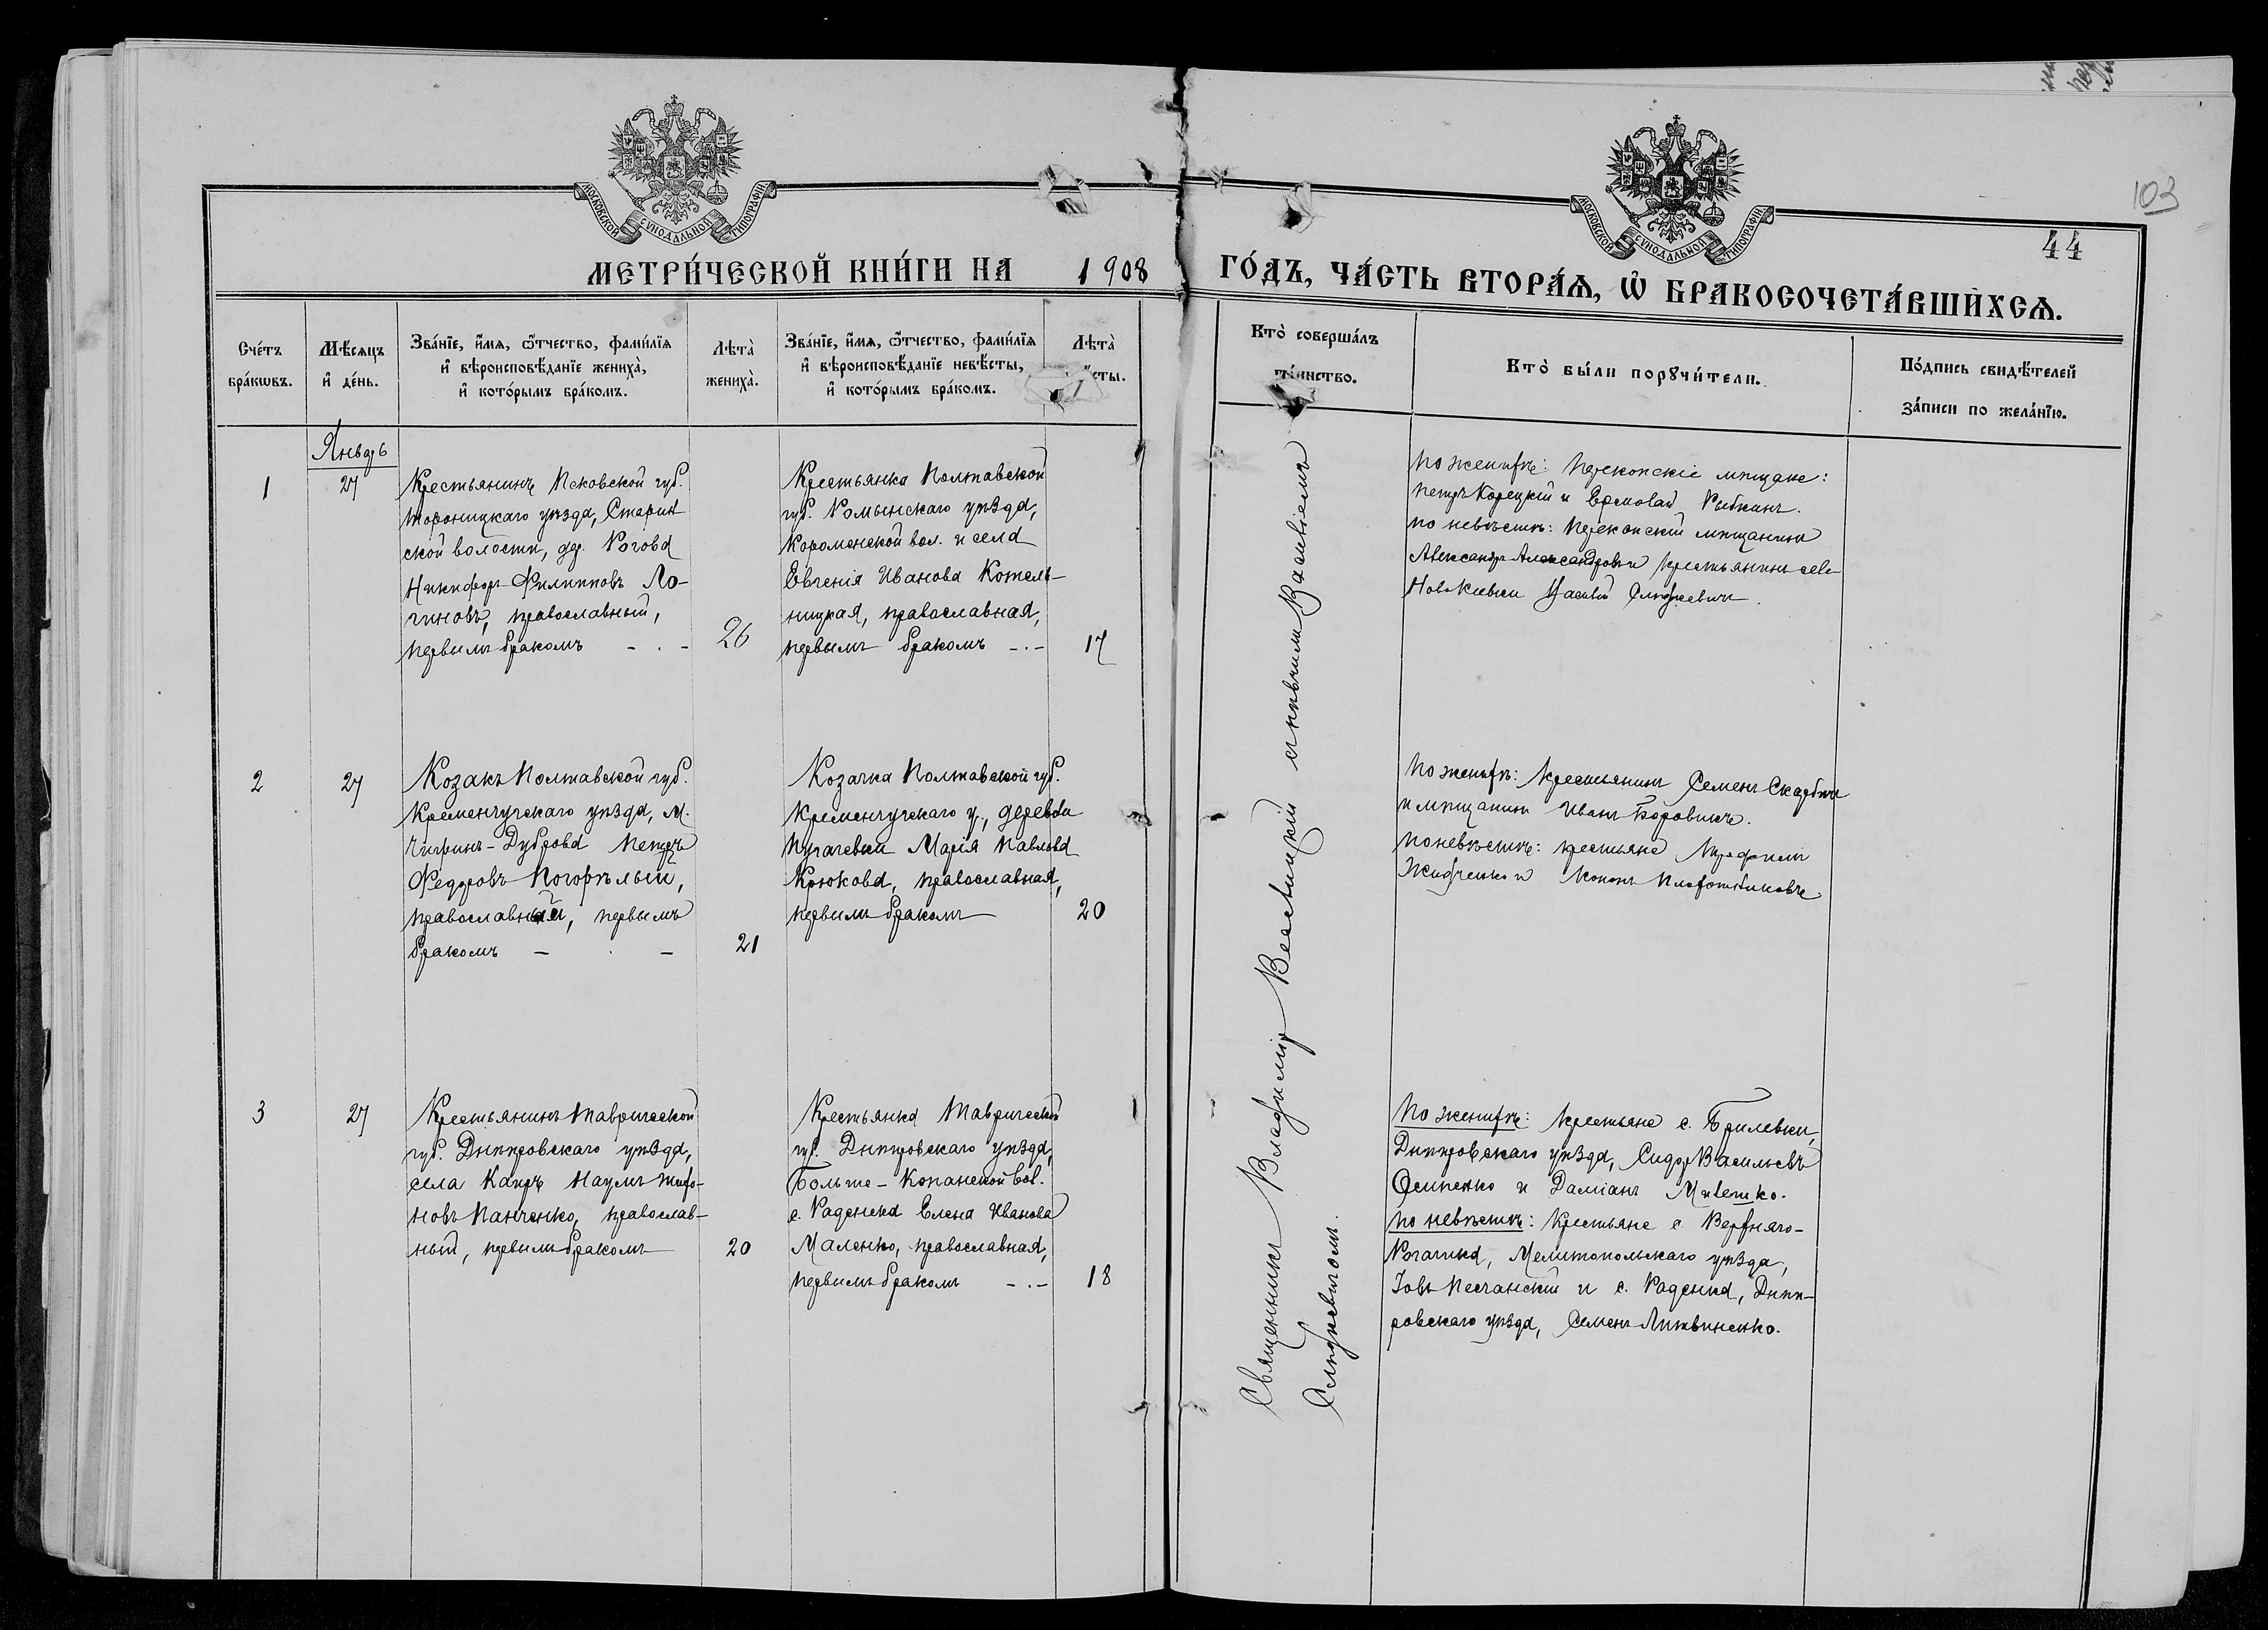 103
44
МОСКОВСКОЙ СѴНОДАЛЬНОЙ ТИПОГРАФІИ
МОСКОВСКОЙ СѴНОДАЛЬНОЙ ТИПОГРАФІИ
МЕТРИ́ЧЕСКОЙ КНИ́ГИ НА 1908 ГО́ДЪ, ЧА́СТЬ ВТОРА́Ѧ, Ѽ БРАКОСОЧЕТА́ВШИХСѦ.
Сче́тъ
бра́кѡвъ.
Мѣ́сяцъ
и҆ де́нь.
Зва́нїе, и҆́мѧ, ѻ҆́тчество, фами́лїѧ
и҆ вѣроисповѣ́данїе жениха̀,
и҆ кото́рымъ бра́комъ.
Лѣта̀
жениха̀.
Зва́нїе, и҆́мѧ, ѻ҆́тчество, фами́лїѧ
и҆ вѣроисповѣ́данїе невѣ́сты,
и҆ кото́рымъ бра́комъ.
Лѣта̀
сты.
Кто̀ соверша́лъ
та́инство.
Кто̀ бы́ли порꙋчи́тели.
По́дпись свидѣ́телей
за́писи по жела́нїю.
Январь
1
27
Крестьянинъ Псковской губ.
Торопецкаго уѣзда, Старин
ской волости, дер. Рогова
Никифоръ Филипповъ Ло-
гиновъ, православный,
первымъ бракомъ - . -
26
Крестьянка Полтавской
губ. Роменскаго уѣзда,
вол. и села
Евгенія Иванова Котель-
ницкая, православная,
первымъ бракомъ -.-
17
По женихѣ: Перекопскіе мѣщане:
Петръ Корецкій и Рыбкинъ.
по невѣстѣ: Перекопскій мѣщанинъ
Александръ и крестьянинъ села
2
27
Козакъ Полтавской губ.
Кременчугскаго уѣзда, м.
Чигринъ-Дуброва Петръ
Федоровъ Погорѣлый,
православный, первымъ
бракомъ - . -
21
Козачка Полтавской губ.
Кременчугскаго у., деревни
Пугачевки Марія Павлова
Крюкова, православная,
первымъ бракомъ
20
По женихѣ: Крестьянинъ Семенъ
и мѣщанинъ Иванъ Боровикъ.
по невѣстѣ: крестьяне
и Кононъ
3
27
Крестьянинъ Таврической
губ. Днѣпровскаго уѣзда,
села Каиръ Наумъ Тихо-
новъ Панченко, православ-
ный, первымъ бракомъ
20
Крестьянка Таврической
губ. Днѣпровскаго уѣзда,
Больше-Копанской вол.
с. Раденска Елена Иванова
Маленко, православная,
первымъ бракомъ -.-
18
По женихѣ: Крестьяне с. Брилевки,
Днѣпровскаго уѣзда, Сидоръ Васильевъ
Осипенко и Даміанъ
по невѣстѣ: Крестьяне с. Верхняго-
Рогачика, Мелитопольскаго уѣзда,
Іовъ Песчанскій и с. Раденска, Днѣп-
ровскаго уѣзда, Семенъ Литвиненко.
Священникъ Владиміръ съ Василіемъ